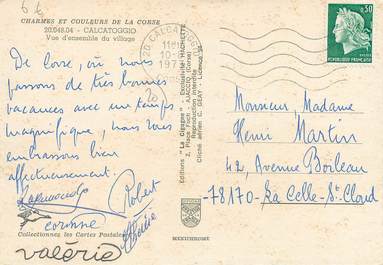 6 €
CHARMES ET COULEURS DE LA CORSE
20.048.04 - CALCATOGGIO
Vue d'ensemble du village
De Corse, où nous
passons de très bonnes
vacances avec un temps
magnifique, nous vous
embrassons bien
affectueusement.
Raymonde
Robert
corinne
valérie
Collectionnez les Cartes Postales
(20)
Editions "La Cigogne" - Exclusivité HACHETTE
2, Place Foch - AJACCIO (Corse)
Reproduction interdite
Cliché aérien C. GEAY - Licence
MEXICHROME
20 CALCATOGGIO
0,50
REPUBLIQUE FRANÇAISE
Monsieur, Madame
Henri Martin
42, Avenue Boileau
-78170- La Celle-St-Cloud